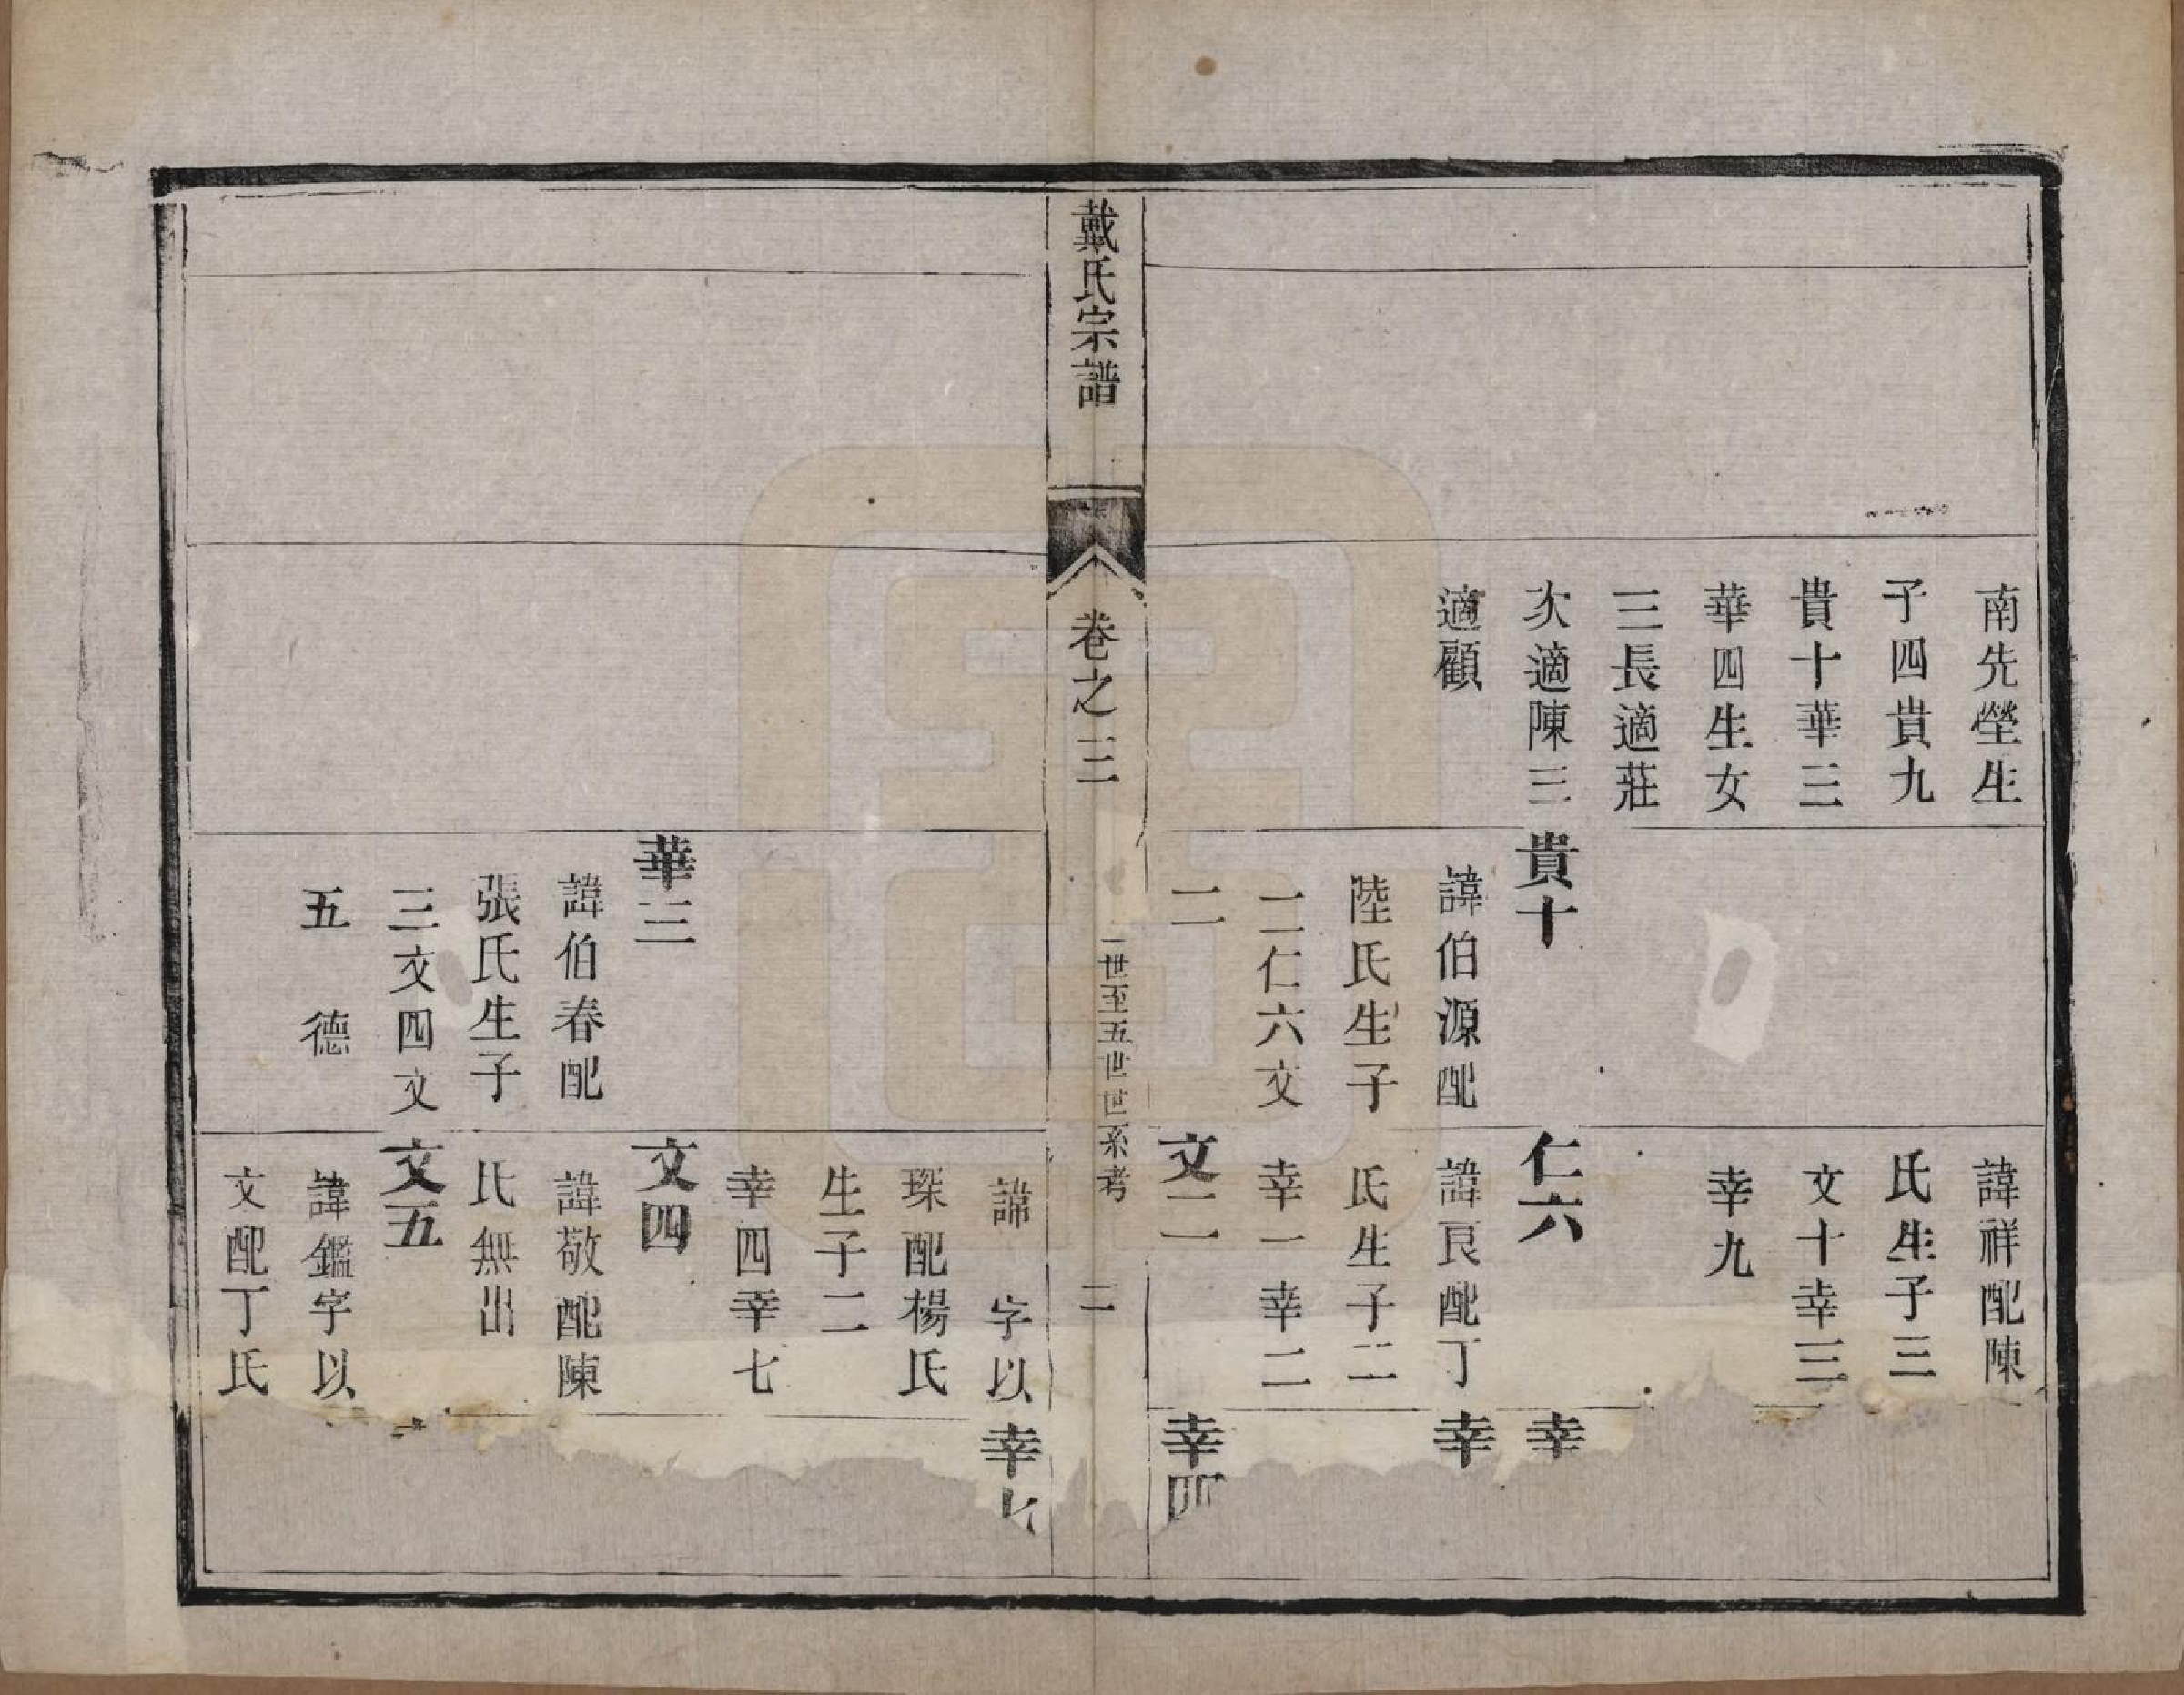 南先塋生
子四貴九
貴十華三
華四生女
三長適莊
次適陳三
適顧
貴十
諱伯源配
陸氏生子
二仁六文
二
諱祥配陳
氏生子三
文十幸三
幸九
仁六
諱良配丁
氏生子二
幸一幸二
文二
幸
幸
幸四
戴氏宗譜
卷之三
一世至五世世系考
二
華三
諱伯春配
張氏生子
三文四文
五 德
諱 字以
琛配楊氏
生子二
幸四幸七
文四
諱敬配陳
氏無出
文五
諱鑑字以
文配丁氏
幸七